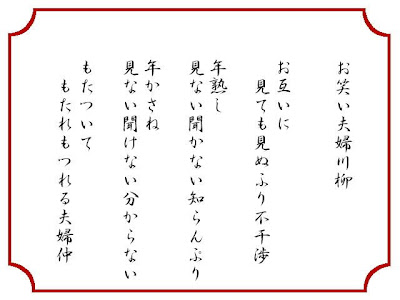 お笑い夫婦川柳
お互いに
見ても見ぬふり不干渉
年熟し
見ない聞かない知らんぷり
年かさね
見ない聞けない分からない
もたついて
もたれもつれる夫婦仲